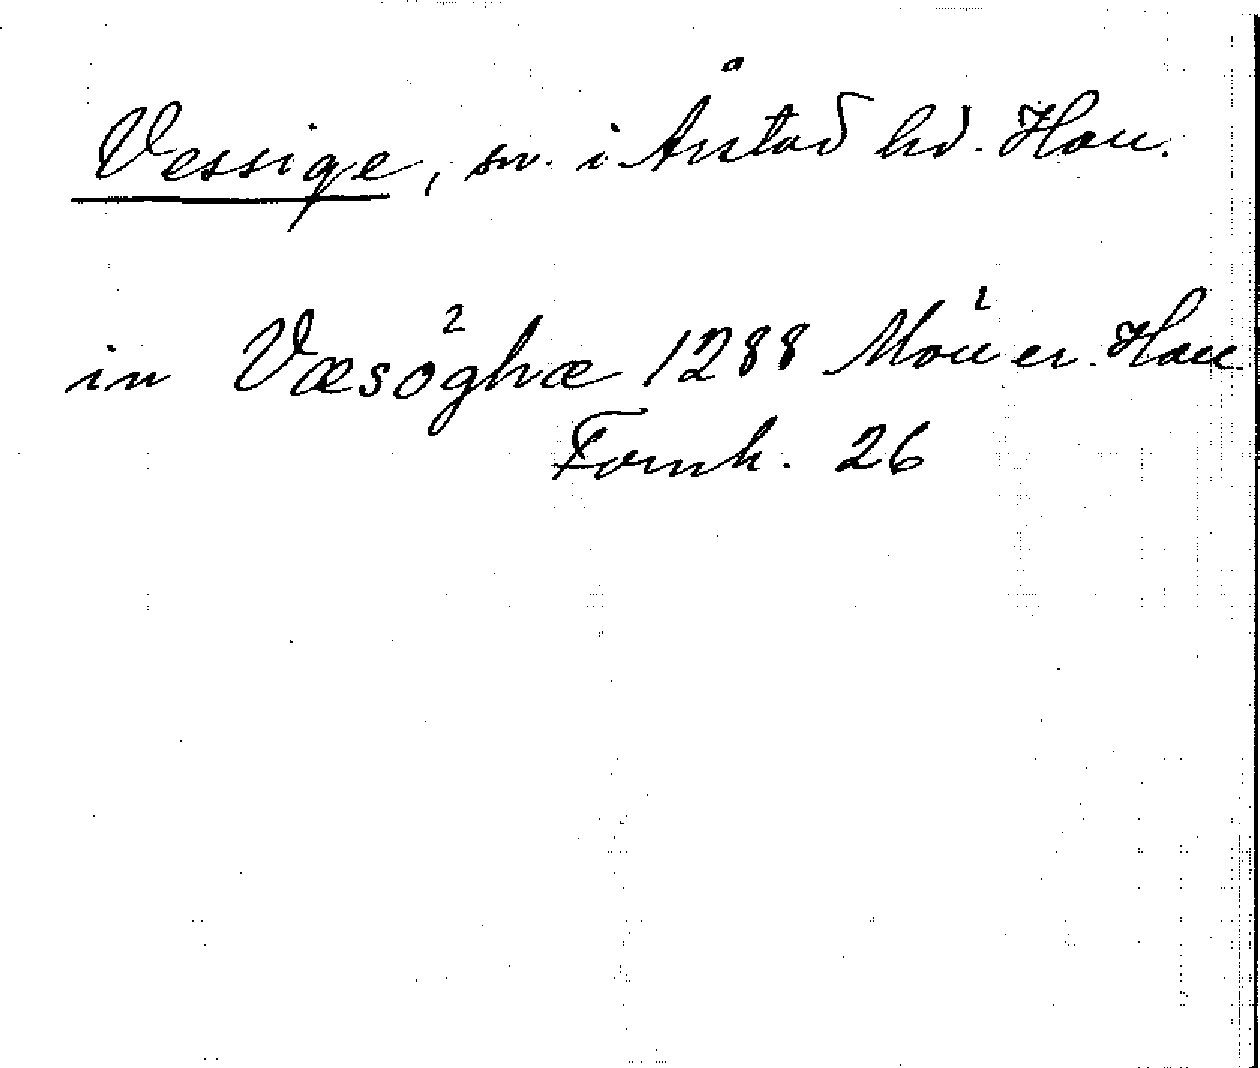 Vessige, sn. i Årstad hd. Hall.
in Væsöghæ 1288 Möller Hall.
Fornh. 26